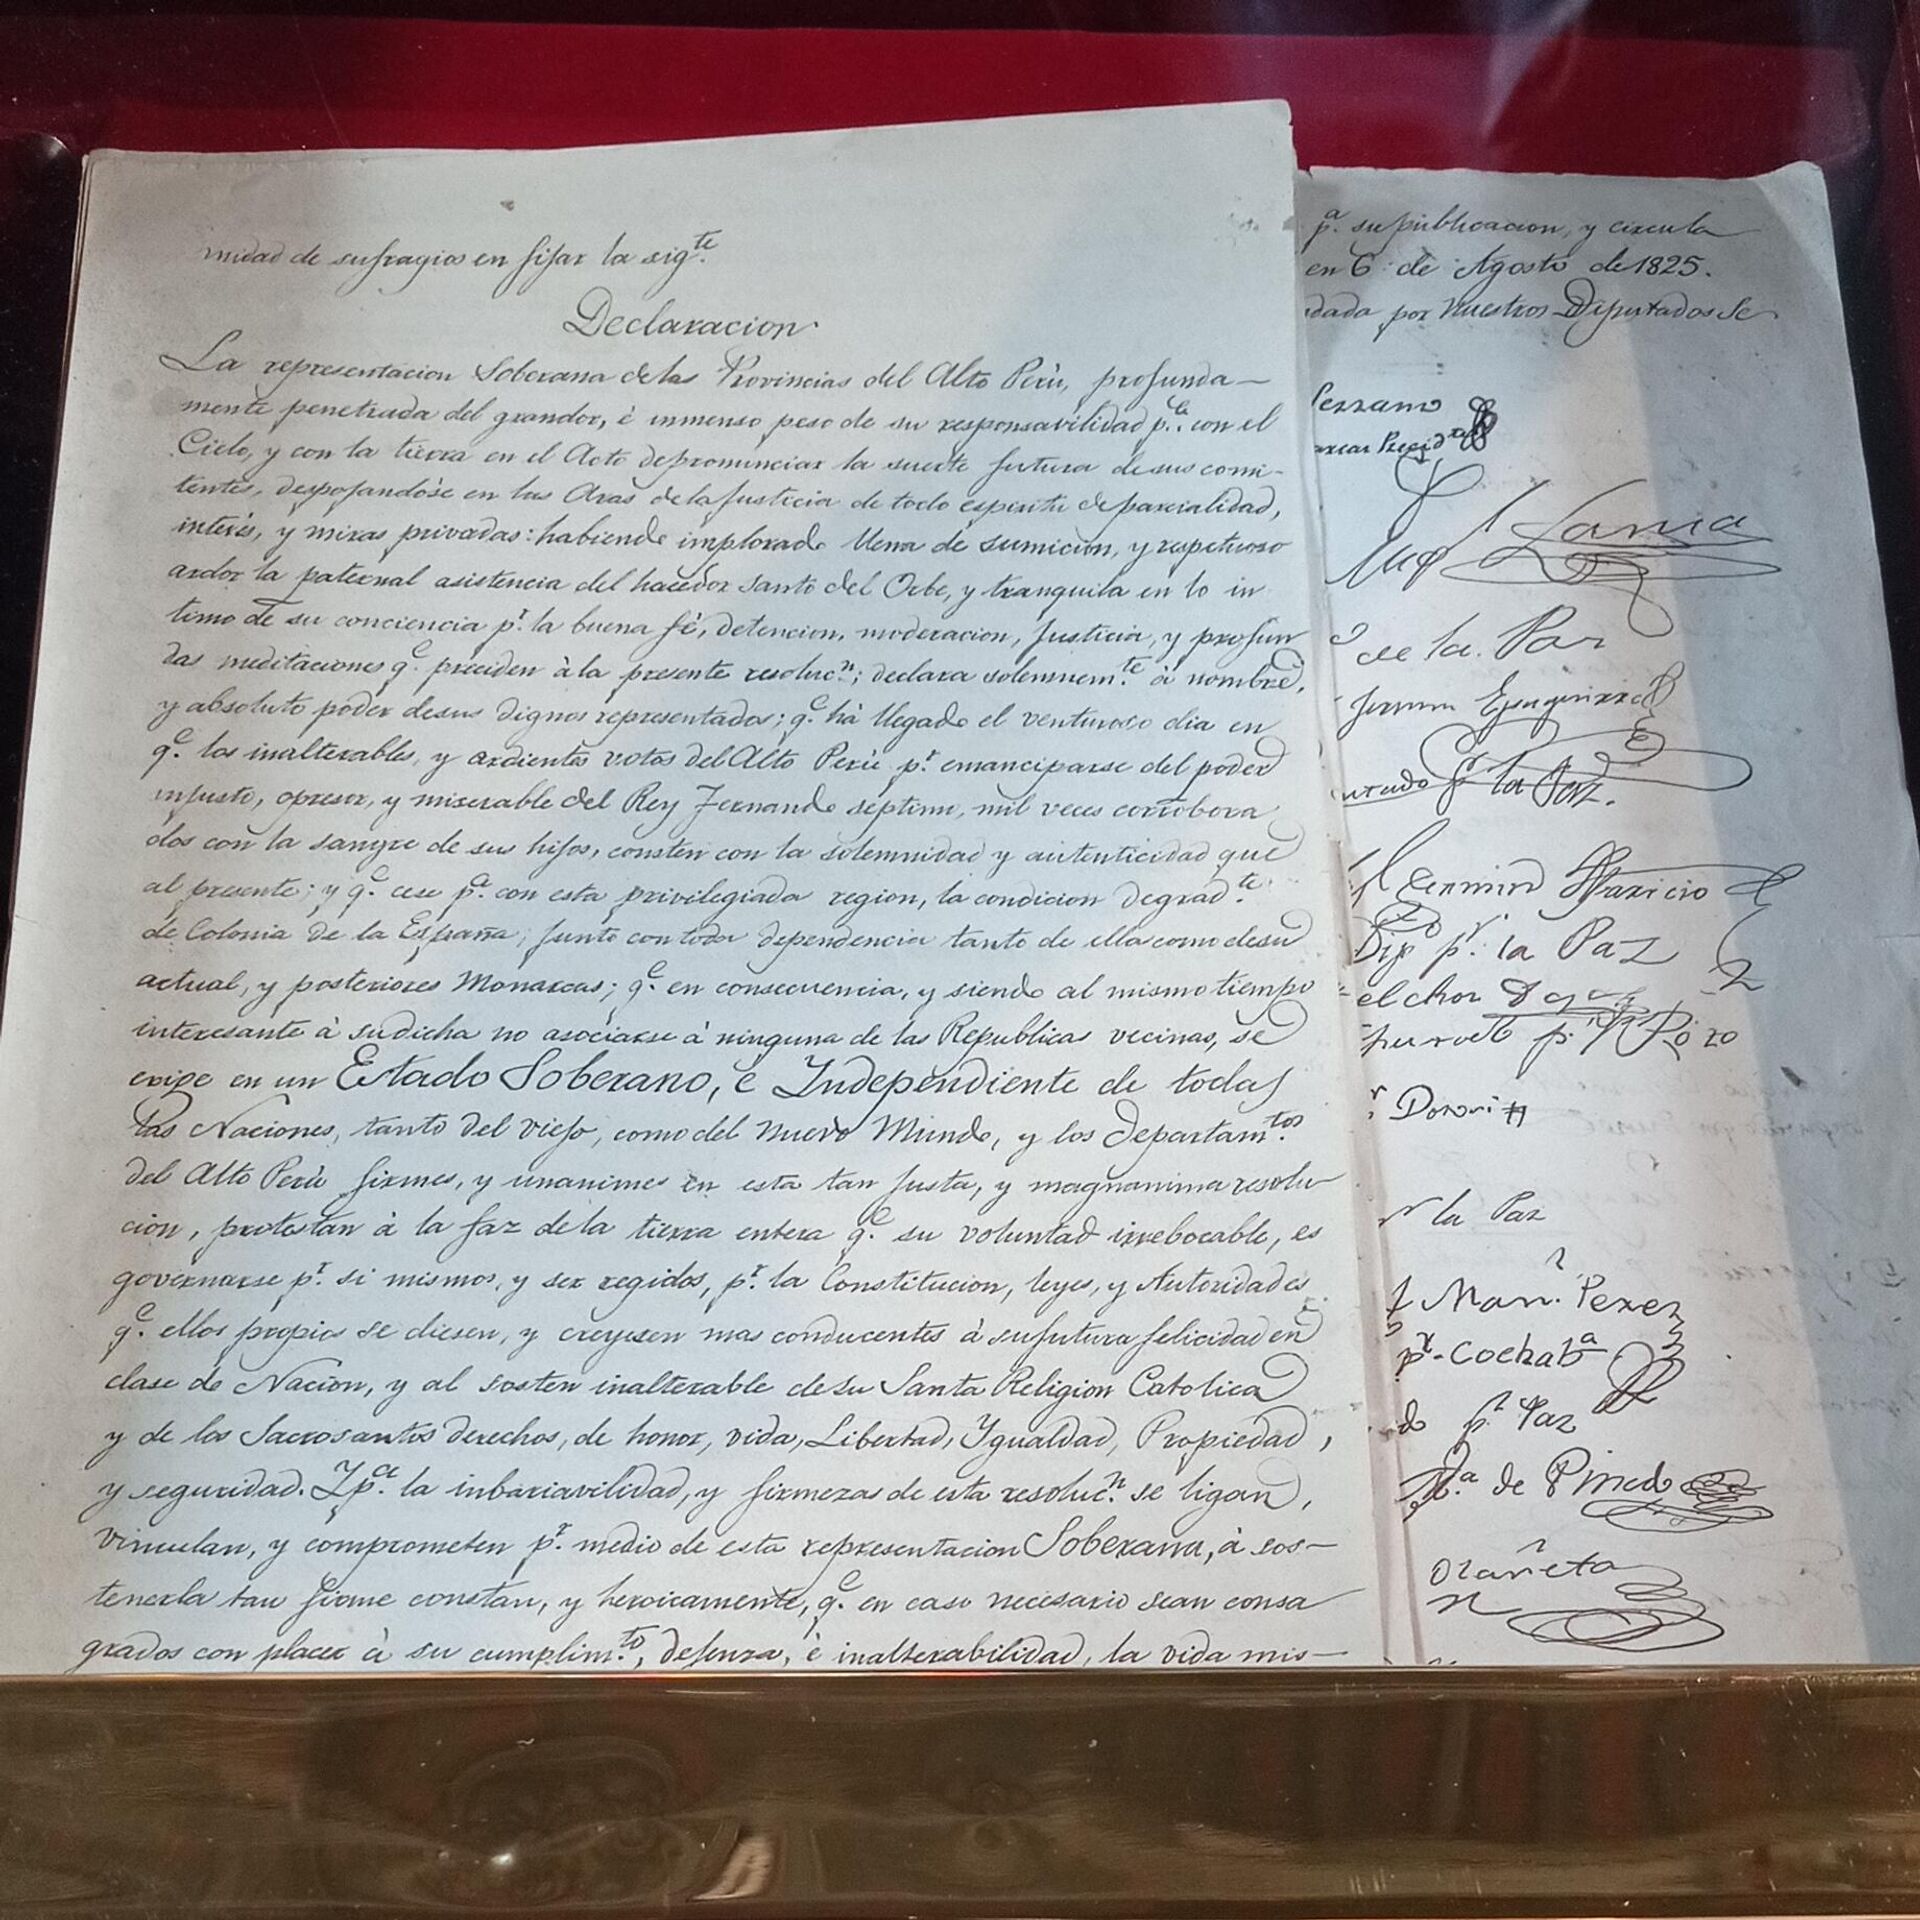 nidad de sufragios en fijar la sig.te
Declaracion
La representacion Soberana de las Provincias del Alto Perù, profunda-
mente penetrada del grandor, è inmenso peso de su responsavilidad p.a con el
Cielo, y con la tierra en el Acto de pronunciar la suerte futura de sus comi-
tentes, despojandòse en las Aras de la Justicia de todo espiritu de parcialidad,
interès, y miras privadas: habiendo implorado llena de sumicion, y respetuoso
ardor la paternal asistencia del hacedor Santo del Orbe, y tranquila en lo in
timo de su conciencia p.r la buena fè, detencion, moderacion, Justicia, y profun
das meditaciones q.e preciden à la presente resoluc.n; declara solemnem.te à nombre,
y absoluto poder de sus dignos representados; q.e hà llegado el venturoso dia en
q.e los inalterables, y ardientes votos del Alto Perù p.r emanciparse del poder
injusto, opresor, y miserable del Rey Fernando septimo, mil veces corrobora
dos con la sangre de sus hijos, consten con la solemnidad y autenticidad que
al presente; y q.e cese p.a con esta privilegiada region, la condicion degrad.te
de Colonia de la España, junto con toda dependencia tanto de ella como de su
actual, y posteriores Monarcas; q.e en consecuencia, y siendo al mismo tiempo
interesante à su dicha no asociarse à ninguna de las Republicas vecinas, se
erige en un Estado Soberano, è Independiente de todas
las Naciones, tanto del viejo, como del nuevo Mundo, y los departam.tos
del Alto Perù firmes, y unanimes en esta tan justa, y magnanima resolu-
cion, protestan à la faz de la tierra entera q.e su voluntad irrebocable, es
governarse p.r si mismos, y ser regidos, p.r la Constitucion, leyes, y Autoridades
q.e ellos propios se diesen, y creyesen mas conducentes à su futura felicidad en
clase de Nacion, y al sosten inalterable de su Santa Religion Catolica
y de los Sacrosantos derechos, de honor, vida, Libertad, Ygualdad, Propiedad,
y seguridad. Y p.a la inbariavilidad, y firmeza de esta resoluc.n se ligan,
vinculan, y comprometen p.r medio de esta representacion Soberana, à sos-
tenerla tan firme constan, y heroicamente, q.e en caso necesario sean consa
grados con placer à su cumplim.to, defenza, è inalterabilidad, la vida mis-
p.a su publicacion, y circula
en 6 de Agosto de 1825.
dada por nuestros Diputados Se
Serrano
de la Paz
p.r la Paz.
Fermin Aparicio
Dip p.r la Paz
elchor
la Paz
Man. Perez
p.r Cochab.a
p.r Paz
M.a de Pinedo
Olañeta